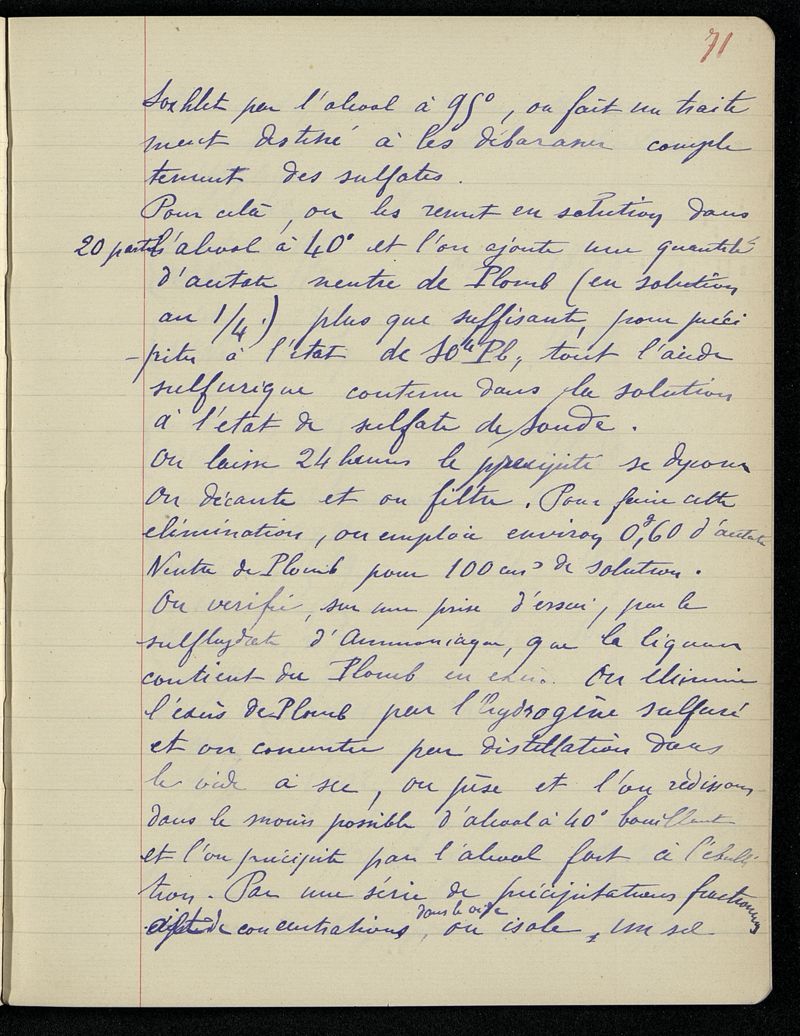 71
Soxhlet par l'alcool à 95°, on fait un traite
ment destiné à les débarasser comple
tement des sulfates.
Pour celà, on les remet en solution dans
20 parties l'alcool à 40° et l'on ajoute une quantité
d'acetate neutre de Plomb (en solution
au 1/4.) plus que suffisante, pour préci
-piter à l'état de SO4Pb, tout l'acide
sulfurique contenu dans la solution
à l'état de sulfate de soude.
On laisse 24 heures le précipité se deposer
On décante et on filtre. Pour faire cette
elimination, on emploie environ 0g,60 d'acetate
Neutre de Plomb pour 100 cm3 de solution.
On verifie, sur une prise d'essai, par le
sulfhydrate d'Ammoniaque, que la liqueur
contient du Plomb en excès. On élimine
l'excès de Plomb par l'hydrogène sulfuré
et on concentre par distillation dans
le vide à sec, on pèse et l'on rédissous
dans le moins possible d'alcool à 40° bouillant
et l'on précipite par l'alcool fort à l'ebulli
tion. Par une série de précipitations fractionnées
et de concentrations dans le vide, on isole, un sel